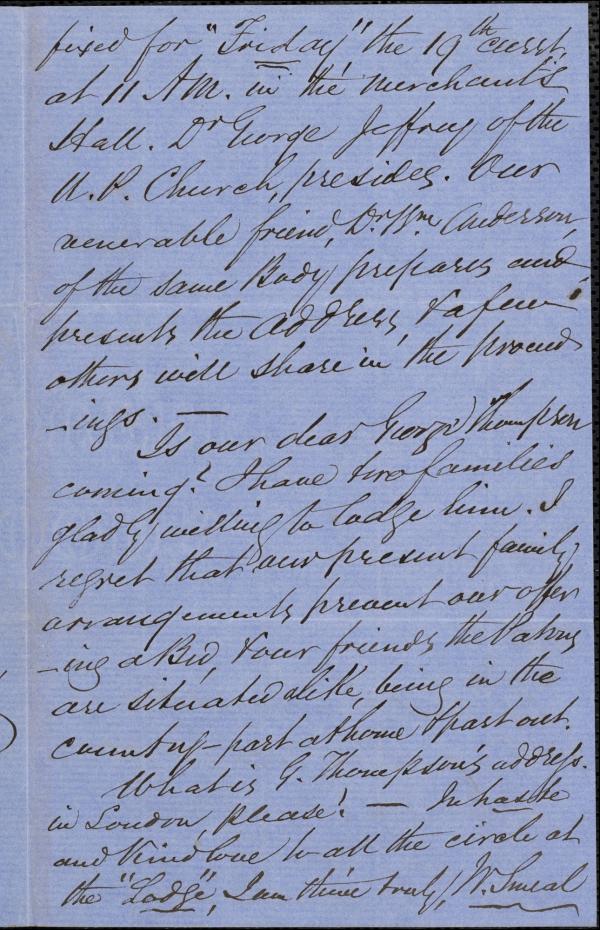 fixed for "Friday" the 19th curst,
at 11 A.M. in the Merchant's
Hall. Dr George Jeffrey of the
U.P. Church, presides. Our
venerable friend, Dr Wm Anderson,
of the same Body prepares and
presents the Address, & a few
others will share in the proceed
-ings. —
Is our dear George Thompson
coming? I have two families
gladly willing to lodge him. I
regret that our present family
arrangements prevent our offer
-ing a Bed, & our friends the Patons
are situated alike, being in the
country – part at home & part out.
What is G. Thompson's address.
in London, please! — In haste
and kind love to all the circle at
the "Lodge", I am thine truly, W. Smeal